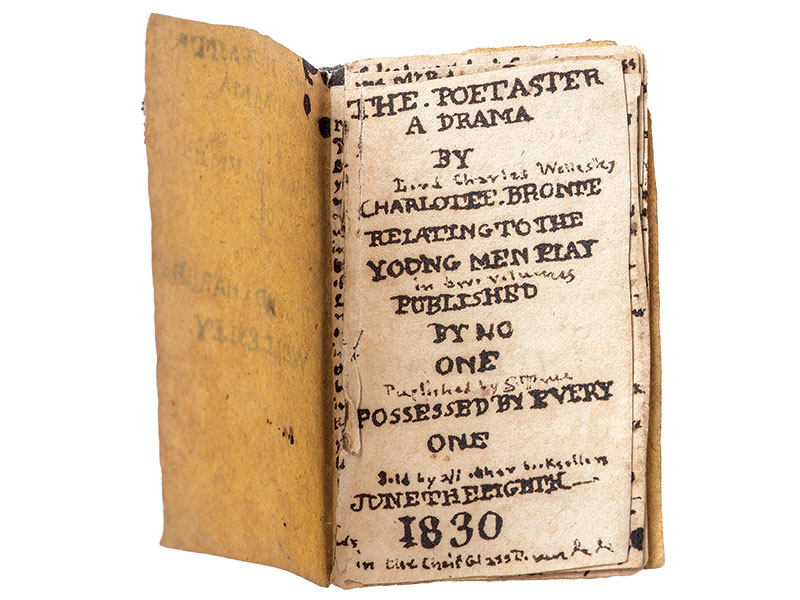 THE. POETASTER
A DRAMA
BY
Lord Charles Wellesley
CHARLOTTE. BRONTE
RELATING TO THE
YOUNG MEN PLAY
in two volumes
PUBLISHED
BY NO
ONE
Published by S Tree
POSSESSED BY EVERY
ONE
Sold by all other booksellers
JUNE THE EIGHTH
1830
in the Chief Glass T